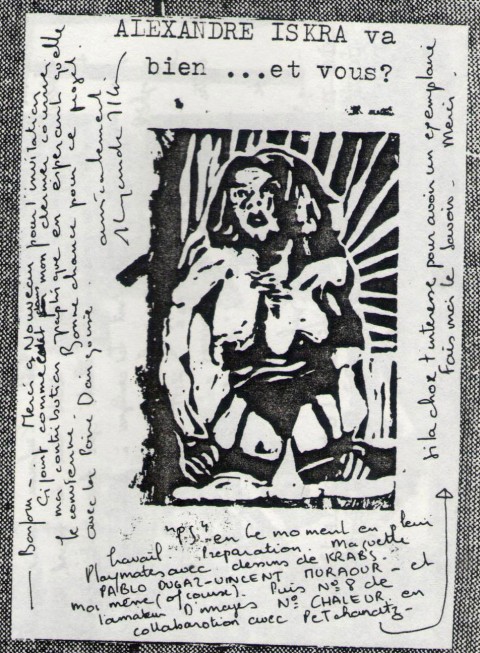 ALEXANDRE ISKRA va
bien ...et vous?
Bonjour - Merci à Nouveau pour l'invitation
Ci joint comme mon dernier courrier
ma contribution graphique en espérant qu'elle
te convienne. Bonne chance pour ce projet
avec la Poire D'angoisse.
amicalement
PS - en ce moment en plein
travail. Préparation. Maquette
Playmates avec dessins de KRABS.
PABLO DUGAZ - VINCENT MURAOUR - et
moi même (of course). Puis No 8 de
l'amateur D'images No CHALEUR. en
collaboration avec PeTchanatz -
si la chose t'interesse pour avoir un exemplaire
Fais moi le savoir - Merci.